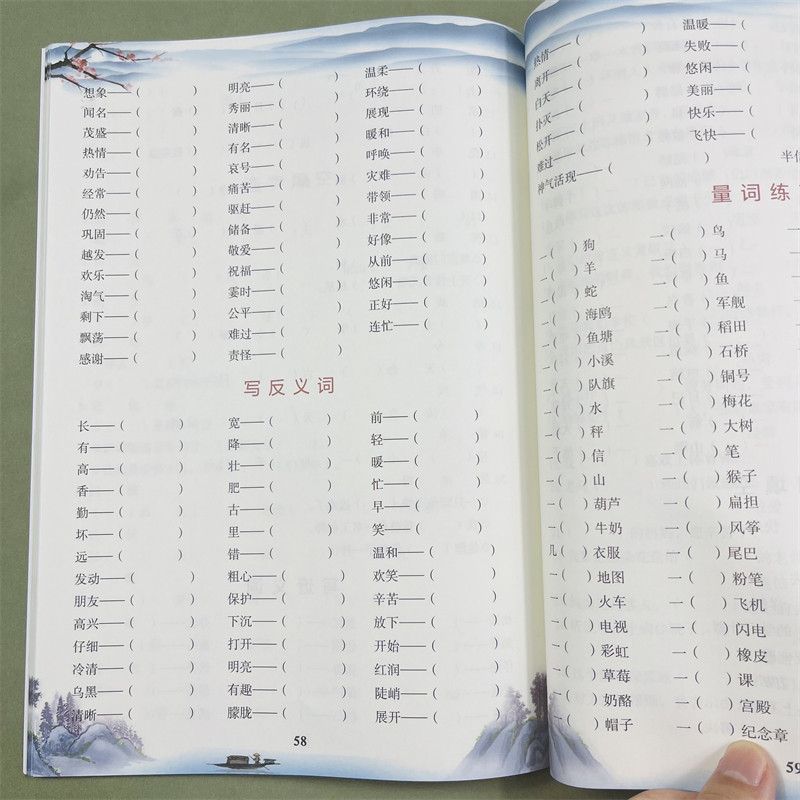 想象——( ) 明亮——( ) 温柔——( )
闻名——( ) 秀丽——( ) 环绕——( )
茂盛——( ) 清晰——( ) 展现——( )
热情——( ) 有名——( ) 暖和——( )
劝告——( ) 哀号——( ) 呼唤——( )
经常——( ) 痛苦——( ) 灾难——( )
仍然——( ) 驱赶——( ) 带领——( )
巩固——( ) 储备——( ) 非常——( )
越发——( ) 敬爱——( ) 好像——( )
欢乐——( ) 祝福——( ) 从前——( )
淘气——( ) 霎时——( ) 悠闲——( )
剩下——( ) 公平——( ) 正好——( )
飘荡——( ) 难过——( ) 连忙——( )
感谢——( ) 责怪——( )
写反义词
长——( ) 宽——( ) 前——( )
有——( ) 降——( ) 轻——( )
高——( ) 壮——( ) 暖——( )
香——( ) 肥——( ) 忙——( )
勤——( ) 古——( ) 早——( )
坏——( ) 里——( ) 笑——( )
远——( ) 错——( ) 温和——( )
发动——( ) 粗心——( ) 欢笑——( )
朋友——( ) 保护——( ) 辛苦——( )
高兴——( ) 下沉——( ) 放下——( )
仔细——( ) 打开——( ) 开始——( )
冷清——( ) 明亮——( ) 红润——( )
乌黑——( ) 有趣——( ) 陡峭——( )
清晰——( ) 朦胧——( ) 展开——( )
58
热情——( ) 温暖——(
离开——( ) 失败——(
白天——( ) 悠闲——(
扑灭——( ) 美丽——(
松开——( ) 快乐——(
难过——( ) 飞快——(
神气活现——( ) 半信
量词练
一( )狗 一( )鸟
一( )羊 一( )马
一( )蛇 一( )鱼
一( )海鸥 一( )军舰
一( )鱼塘 一( )稻田
一( )小溪 一( )石桥
一( )队旗 一( )铜号
一( )水 一( )梅花
一( )秤 一( )大树
一( )信 一( )笔
一( )山 一( )猴子
一( )葫芦 一( )扁担
一( )牛奶 一( )风筝
几( )衣服 一( )尾巴
一( )地图 一( )粉笔
一( )火车 一( )飞机
一( )电视 一( )闪电
一( )彩虹 一( )橡皮
一( )草莓 一( )课
一( )奶酪 一( )宫殿
一( )帽子 一( )纪念章
59